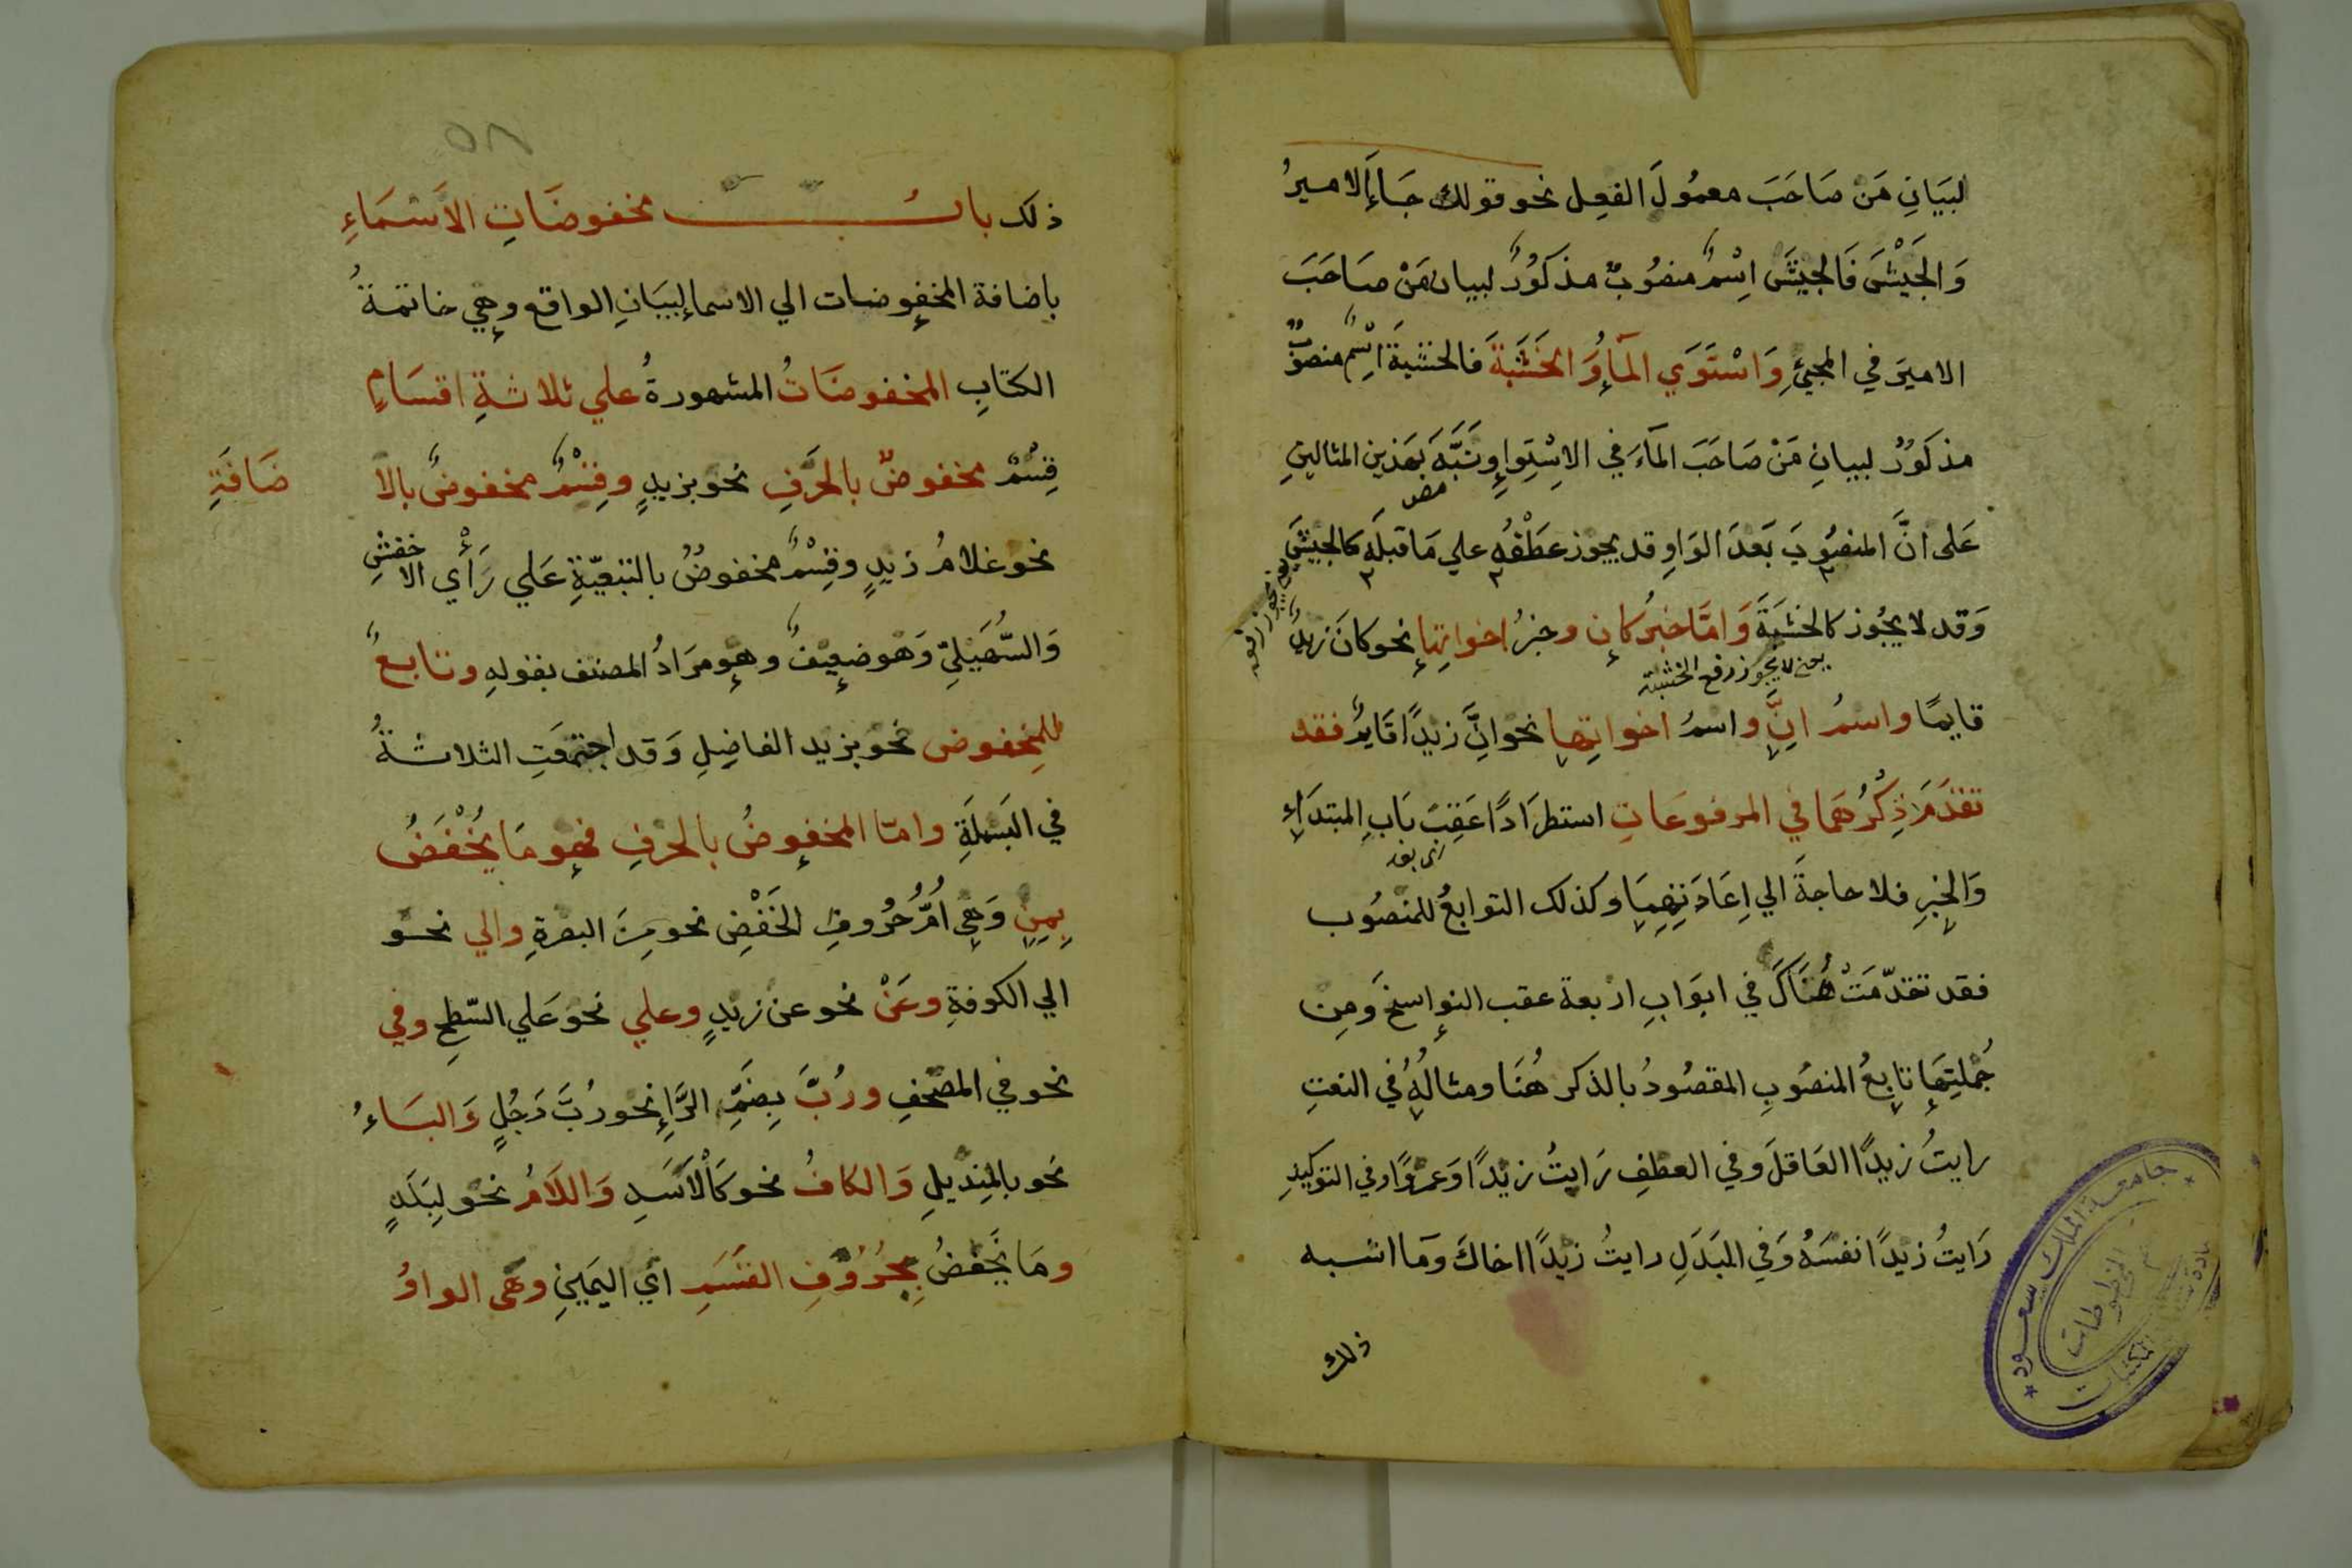 لبيَانِ مَن صَاحَبَ معمُولَ الفعِل نحو قولك جَاءَ الاميرُ
وَالجَيْشَ فَالجَيْشَ اِسْمٌ منصُوبٌ مذكُورٌ لبيان مَنْ صَاحَبَ
الاميَر في المجيءِ وَاسْتَوَي المآءُ وَالخَشَبَةَ فالخشبةَ اسْمٌ منصوبٌ
مذكُورٌ لبيانِ مَنْ صَاحَبَ المآءَ في الاِسْتِواءِ ونَبَّهَ بَهذين المثالينِ
عَلى انَّ المنصُوبَ بَعدَ الوَاوِ قد يجوز عطْفُه علي مَا قبلَه كالجيْشَ
يعني يجوز رفعه
وَقد لا يجُوز كالخشبَةَ وَامَّا خبرُ كان وخبرُ اخواتِها نحو كانَ زيدٌ
يعني لا يجوز رفع الخشبة
قايمًا واسمُ اِنَّ واسمُ اخواتِها نحو اِنَّ زيدًا قَايمٌ فقد
تقدَمَ ذِكرُهمَا في المرفوعَاتِ استطرَادًا عَقِبَ بَابِ المبتدَاءِ
وَالخبرِ فلا حاجةَ الي اِعَادَتِهِمَا وكذلك التوابعُ للمنصُوب
فقد تقدّمَتْ هُنَاكَ في ابوَابِ اربعة عقب النواسخ وَمِن
جُملتِهَا تابعُ المنصُوبِ المقصُودُ بالذكر هُنَا ومثالُهُ في النعتِ
رايتُ زيدًا العَاقلَ وفي العطفِ رَايتُ زيْدًا وَعمرًوا وفي التوكيدِ
رَايتُ زيدًا نفسَهُ وَفي البَدَلِ رايتُ زيْدًا اخاكَ وَمَا اشبه
ذلك
جامعة الملك سعود
المخطوطات
المكتبات
٥٨
ذلك بابُ مخفوضَاتِ الاَسْمَاءِ
باضافة المخفوضات الي الاسماء لبيَانِ الواقع وهِي خاتمةُ
الكتابِ المخفوضَاتُ المشهورةُ علي ثلاثةِ اقسَامٍ
قِسْمٌ مخفوضٌ بالحَرفِ نحو بزيدٍ وقِسْمٌ مخفوضٌ بالا ضَافَةِ
نحو غلامُ زيدٍ وقِسْمٌ مخفوضٌ بالتبعيّةِ عَلي رَأْي الاخفشِ
وَالسُّهَيليّ وَهو ضعيفٌ وهو مرَادُ المصنف بقولهِ وتابعٌ
للمخفوض نحو بزيد الفاضِلِ وَقد اجتمعَتِ الثلاثةُ
في البَسملَةِ وامّا المخفوضُ بالحَرفِ فهو مَا يُخْفَضُ
بِمِن وَهِي اُمُّ حُرُوفِ الخَفْضِ نحو مِنَ البصرةِ والي نحو
الي الكوفةِ وعَنْ نحو عن زيدٍ وعلي نحو عَلي السّطحِ وفي
نحو في المصْحَفِ ورُبَّ بِضَمِّ الرَّاءِ نحو رُبَّ رَجُلٍ وَالبَاءُ
نحو بالمِنديلِ وَالكافُ نحو كَالْاَسَدِ وَاللَامُ نحو لِبَلَدٍ
ومَا يُخفَضُ بحُرُوفِ القسَمِ اي اليَمينِ وهَى الواوُ